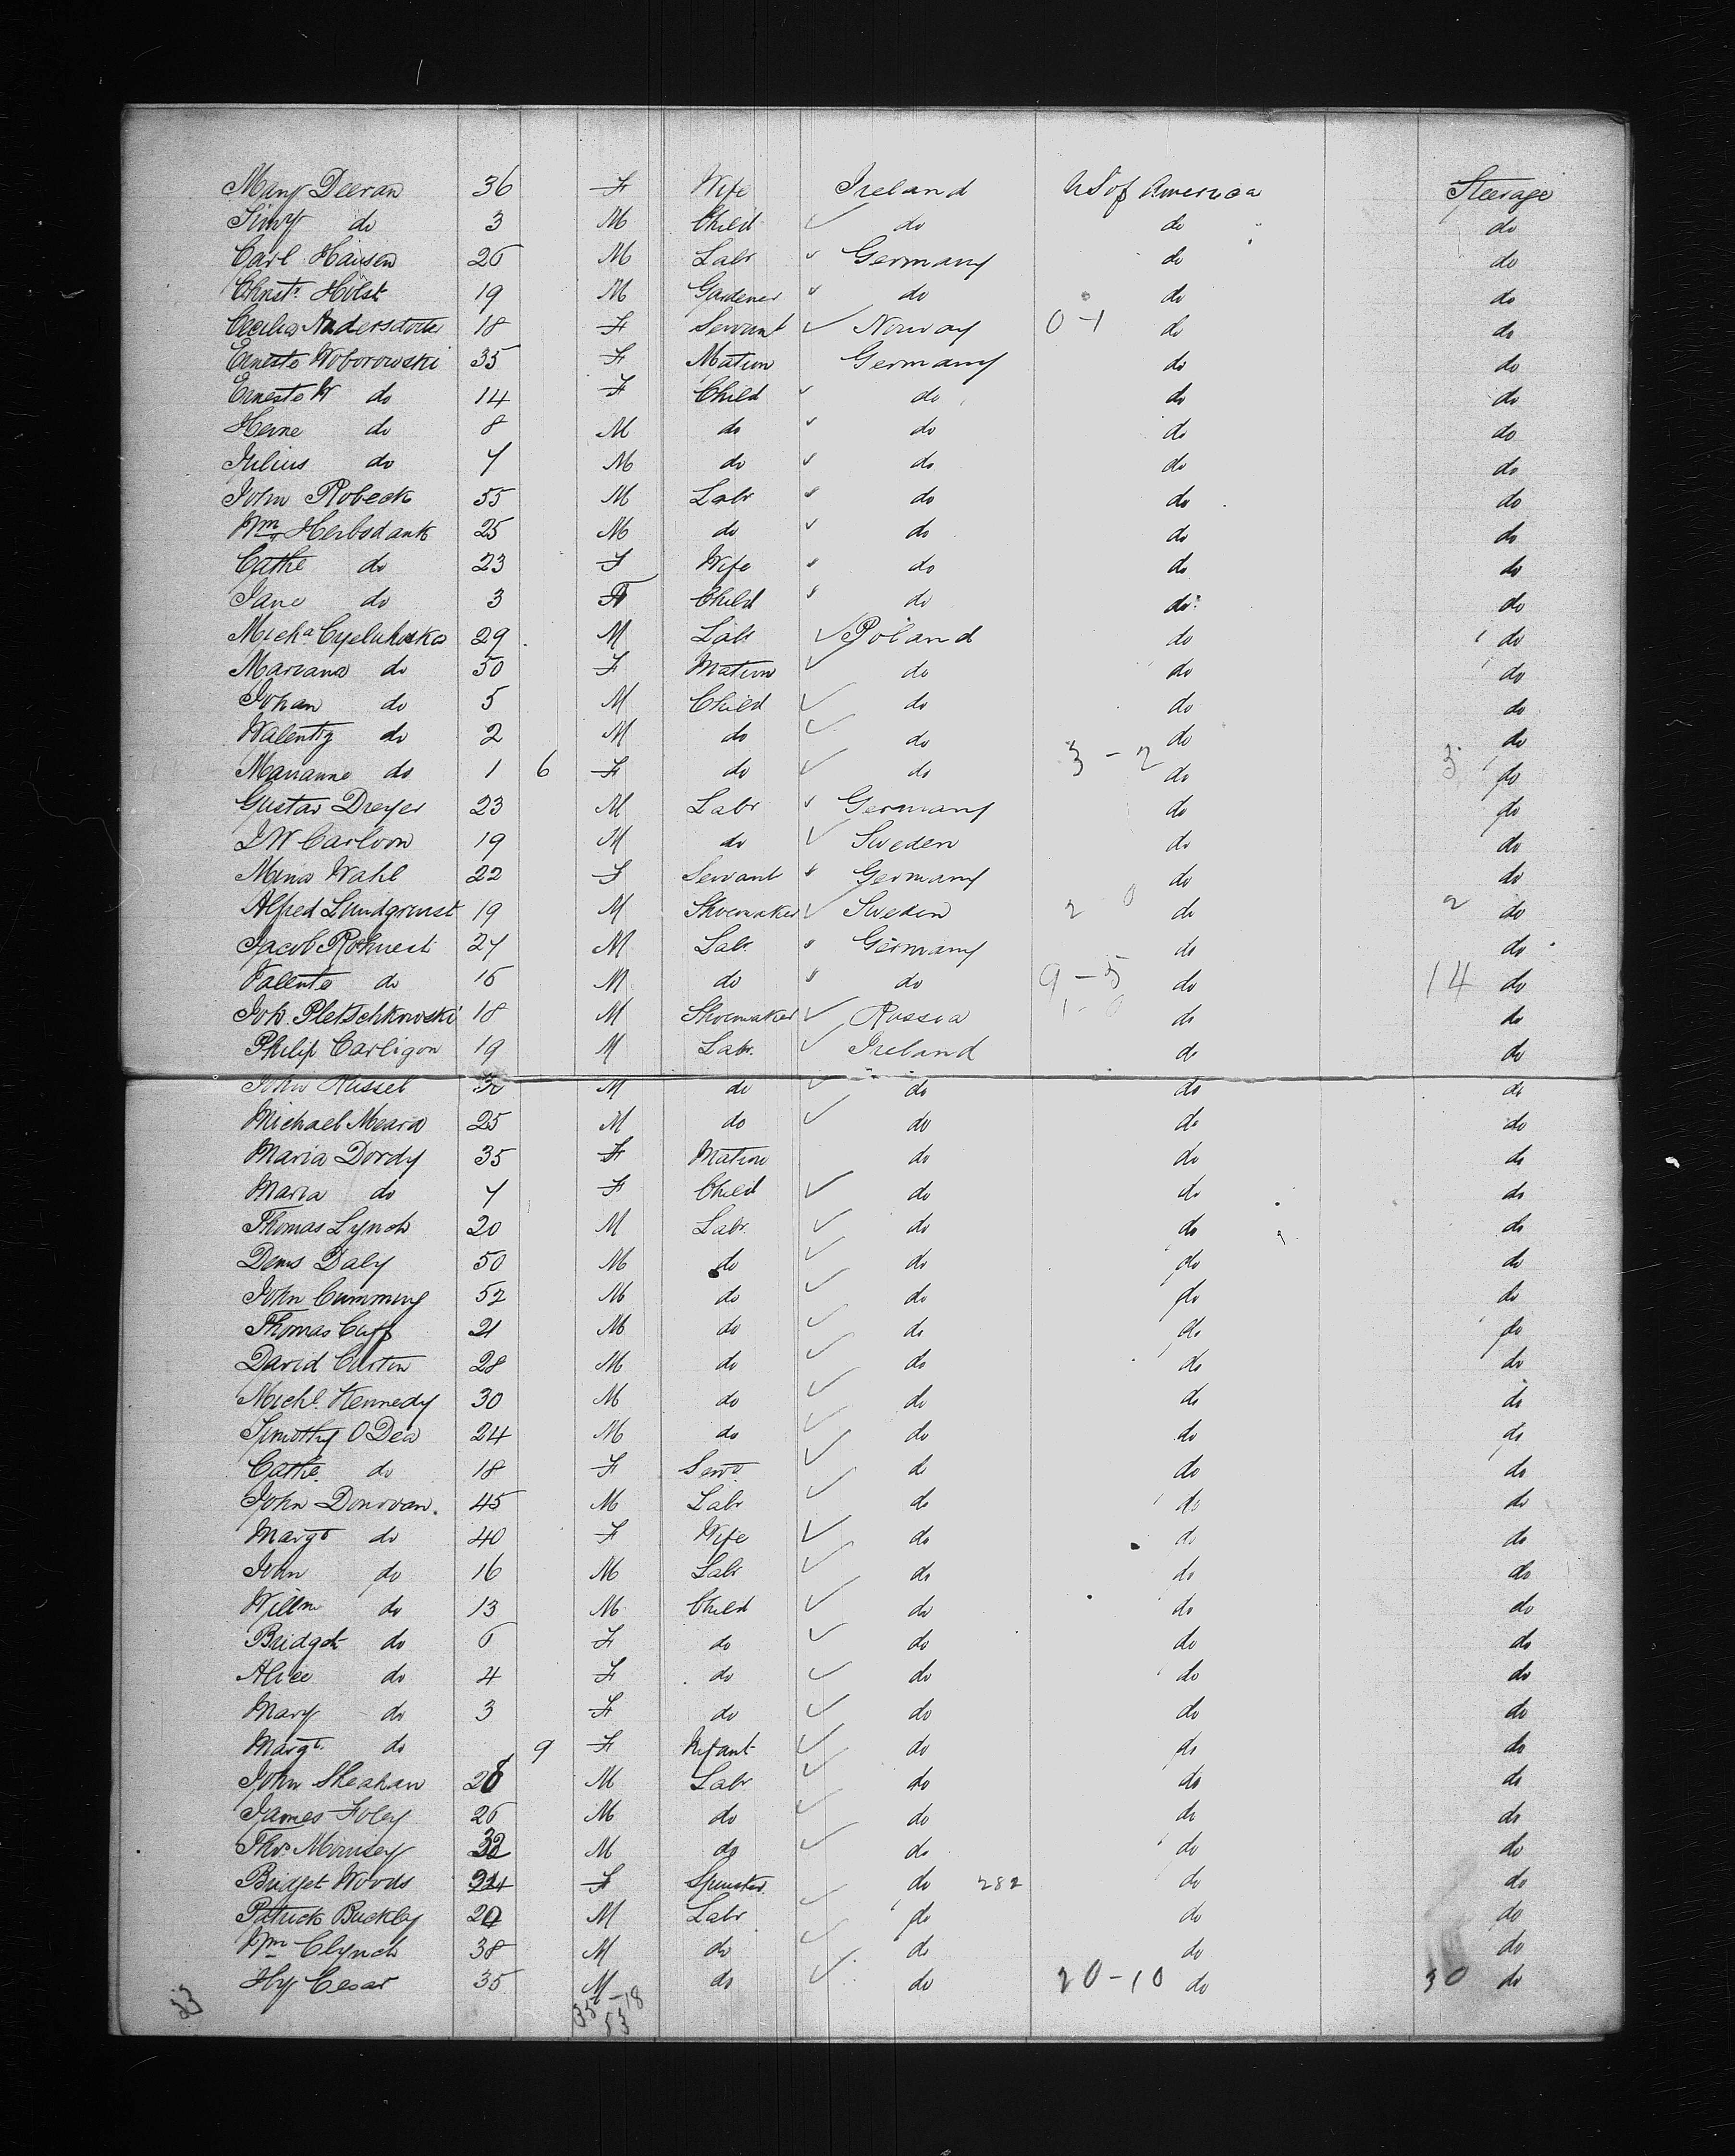 Mary Deeran 36 F Wife Ireland U S of America Steerage
Timy do 3 M Child do do do
Carl Haisen 26 M Labr Germany do do
Christn Holst 19 M Gardener do do do
Cecilia Andersdotter 18 F Servant Norway 0-1 do do
Erneste Woborowski 35 F Matron Germany do do
Erneste W do 14 F Child do do do
Herne do 8 M do do do do
Julius do 7 M do do do do
John Robeck 55 M Labr do do do
Wm Herbodank 25 M do do do do
Cathe do 23 F Wife do do do
Jane do 3 F Child do do do
Micha 29 M Labr Poland do do
Mariana do 50 F Matron do do do
Johan do 5 M Child do do do
Walenty do 2 M do do do do
Marianne do 1 6 F do do 3-2 do 3 do
Gustav Dreyer 23 M Labr Germany do do
J W Carlson 19 M do Sweden do do
Mina Wahl 22 F Servant Germany do do
Alfred Lundgrenst 19 M Shoemaker Sweden 2 0 do 2 do
Jacob 27 M Labr Germany do do
Valente do 16 M do do 9-5 do 14 do
Joh. Pletschkowski 18 M Shoemaker Russia 1-0 do do
Philip Carligon 19 M Labr. Ireland do do
John Russel 30 M do do do do
Michael Meara 25 M do do do do
Maria Dordy 35 F Matron do do do
Maria do 7 F Child do do do
Thomas Lynch 20 M Labr. do do do
Denis Daly 50 M do do do do
John Cumming 52 M do do do do
Thomas Cuff 21 M do do do do
David Curtin 28 M do do do do
Michl. Kennedy 30 M do do do do
Timothy O Dea 24 M do do do do
Cathe. do 18 F Servt do do do
John Donovan. 45 M Labr do do do
Margt do 40 F Wife do do do
John do 16 M Labr do do do
Willm do 13 M Child do do do
Bridget do 6 F do do do do
Alice do 4 F do do do do
Mary do 3 F do do do do
Margt. do 9 F Infant do do do
John Sheahan 28 M Labr do do do
James Foley 26 M do do do do
Thos. 32 M do do do do
Bridget Woods 24 F Spinster do 282 do do
Patrick Buckley 24 M Labr do do do
Wm Clynch 38 M do do do do
Hy Cesar 35 M do do 20-10 do 30 do
53 35-18
53